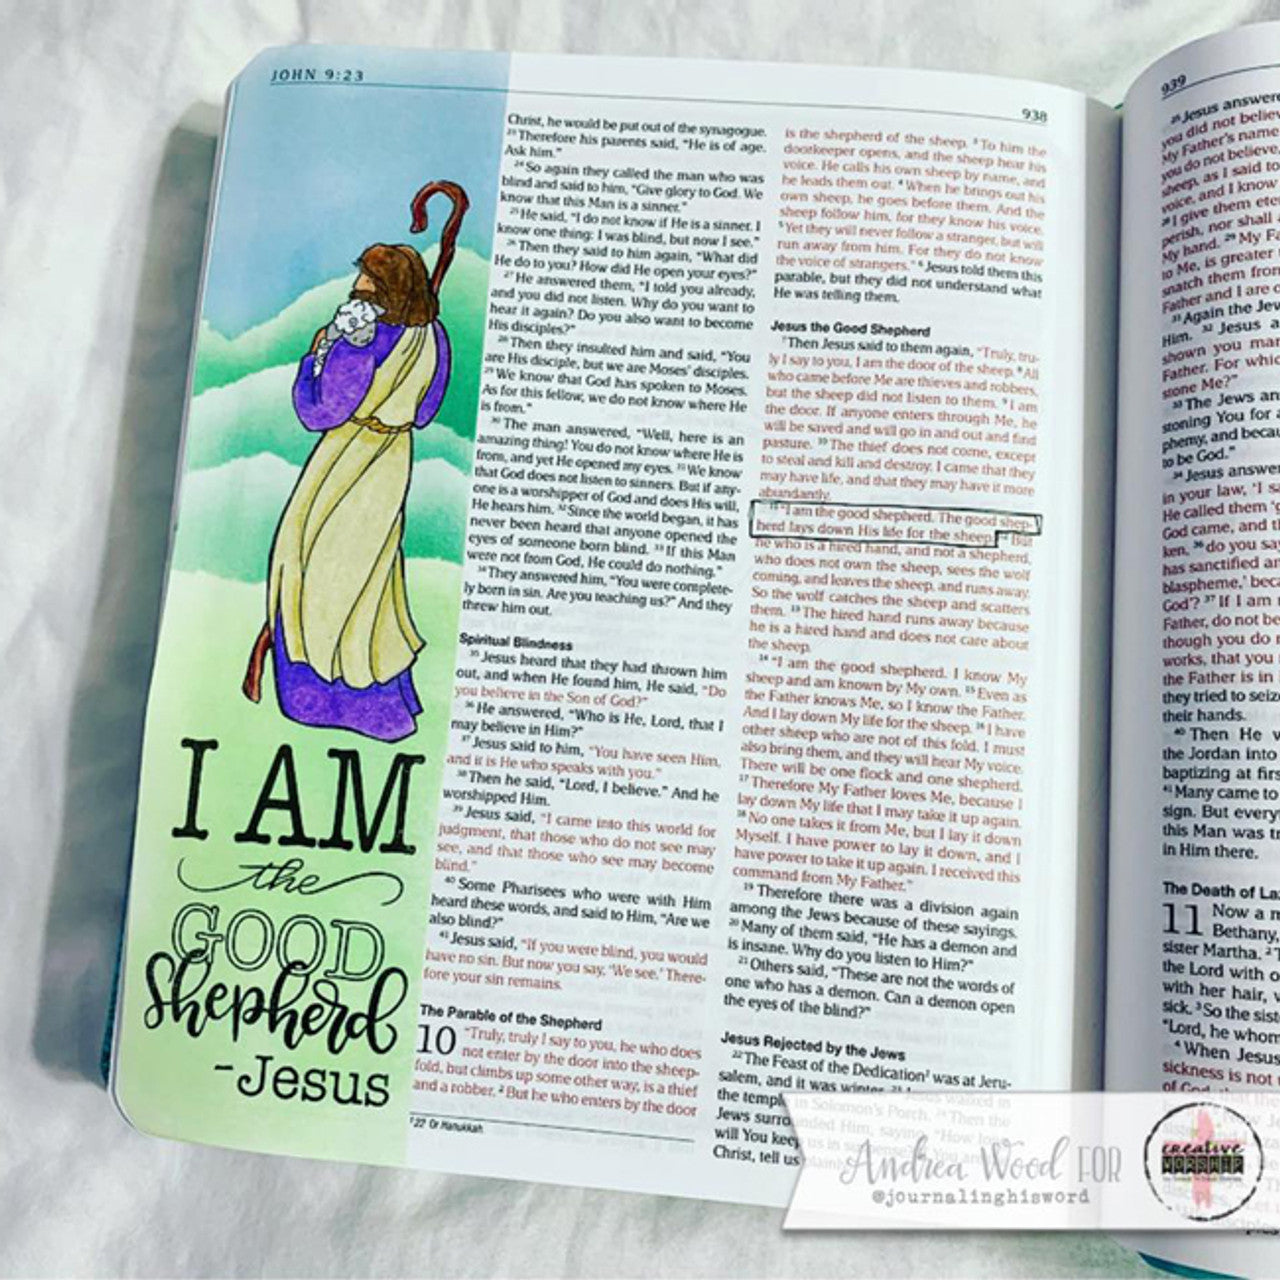 JOHN 9:23
938
I AM
the
GOOD
Shepherd
-Jesus
Christ, he would be put out of the synagogue.
23 Therefore his parents said, “He is of age.
Ask him.”
24 So again they called the man who was
blind and said to him, “Give glory to God. We
know that this Man is a sinner.”
25 He said, “I do not know if He is a sinner. I
know one thing: I was blind, but now I see.”
26 Then they said to him again, “What did
He do to you? How did He open your eyes?”
27 He answered them, “I told you already,
and you did not listen. Why do you want to
hear it again? Do you also want to become
His disciples?”
28 Then they insulted him and said, “You
are His disciple, but we are Moses’ disciples.
29 We know that God has spoken to Moses.
As for this fellow, we do not know where He
is from.”
30 The man answered, “Well, here is an
amazing thing! You do not know where He is
from, and yet He opened my eyes. 31 We know
that God does not listen to sinners. But if any-
one is a worshipper of God and does His will,
He hears him. 32 Since the world began, it has
never been heard that anyone opened the
eyes of someone born blind. 33 If this Man
were not from God, He could do nothing.”
34 They answered him, “You were complete-
ly born in sin. Are you teaching us?” And they
threw him out.
Spiritual Blindness
35 Jesus heard that they had thrown him
out, and when He found him, He said, “Do
you believe in the Son of God?”
36 He answered, “Who is He, Lord, that I
may believe in Him?”
37 Jesus said to him, “You have seen Him,
and it is He who speaks with you.”
38 Then he said, “Lord, I believe.” And he
worshipped Him.
39 Jesus said, “I came into this world for
judgment, that those who do not see may
see, and that those who see may become
blind.”
40 Some Pharisees who were with Him
heard these words, and said to Him, “Are we
also blind?”
41 Jesus said, “If you were blind, you would
have no sin. But now you say, ‘We see.’ There-
fore your sin remains.
The Parable of the Shepherd
10 “Truly, truly I say to you, he who does
not enter by the door into the sheep-
fold, but climbs up some other way, is a thief
and a robber. 2 But he who enters by the door
22 Or Hanukkah.
is the shepherd of the sheep. 3 To him the
doorkeeper opens, and the sheep hear his
voice. He calls his own sheep by name, and
he leads them out. 4 When he brings out his
own sheep, he goes before them. And the
sheep follow him, for they know his voice.
5 Yet they will never follow a stranger, but will
run away from him. For they do not know
the voice of strangers.” 6 Jesus told them this
parable, but they did not understand what
He was telling them.
Jesus the Good Shepherd
7 Then Jesus said to them again, “Truly, tru-
ly I say to you, I am the door of the sheep. 8 All
who came before Me are thieves and robbers,
but the sheep did not listen to them. 9 I am
the door. If anyone enters through Me, he
will be saved and will go in and out and find
pasture. 10 The thief does not come, except
to steal and kill and destroy. I came that they
may have life, and that they may have it more
abundantly.
11 “I am the good shepherd. The good shep-
herd lays down His life for the sheep. 12 But
he who is a hired hand, and not a shepherd,
who does not own the sheep, sees the wolf
coming, and leaves the sheep, and runs away.
So the wolf catches the sheep and scatters
them. 13 The hired hand runs away because
he is a hired hand and does not care about
the sheep.
14 “I am the good shepherd. I know My
sheep and am known by My own. 15 Even as
the Father knows Me, so I know the Father.
And I lay down My life for the sheep. 16 I have
other sheep who are not of this fold. I must
also bring them, and they will hear My voice.
There will be one flock and one shepherd.
17 Therefore My Father loves Me, because I
lay down My life that I may take it up again.
18 No one takes it from Me, but I lay it down
Myself. I have power to lay it down, and I
have power to take it up again. I received this
command from My Father.”
19 Therefore there was a division again
among the Jews because of these sayings.
20 Many of them said, “He has a demon and
is insane. Why do you listen to Him?”
21 Others said, “These are not the words of
one who has a demon. Can a demon open
the eyes of the blind?”
Jesus Rejected by the Jews
22 The Feast of the Dedication was at Jeru-
salem, and it was winter. 23 Jesus walked in
the temple in Solomon’s Porch. 24 Then the
Jews surrounded Him, saying, “How long
will You keep us in
Christ, tell us plainly
939
25 Jesus answere
you did not believ
My Father’s name
you do not believe,
sheep, as I said to
voice, and I know
28 I give them ete
perish, nor shall
My hand. 29 My Fa
to Me, is greater
snatch them from
Father and I are o
31 Again the Jew
Him. 32 Jesus a
shown you man
Father. For which
stone Me?”
33 The Jews an
stoning You for
phemy, and becau
to be God.”
34 Jesus answer
in your law, ‘I sa
He called them ‘g
God came, and t
ken, 36 do you say
has sanctified an
blaspheme,’ beca
God’? 37 If I am
Father, do not be
though you do
works, that you
the Father is in
they tried to seiz
their hands.
40 Then He w
the Jordan into
baptizing at firs
41 Many came to
sign. But every
this Man was tr
in Him there.
The Death of La
11 Now a m
Bethany,
sister Martha. 2 T
the Lord with o
with her hair, w
sick. 3 So the siste
“Lord, he whom
4 When Jesus
sickness is not
of God
Andrea Wood FOR
@journalinghisword
creative
WORSHIP